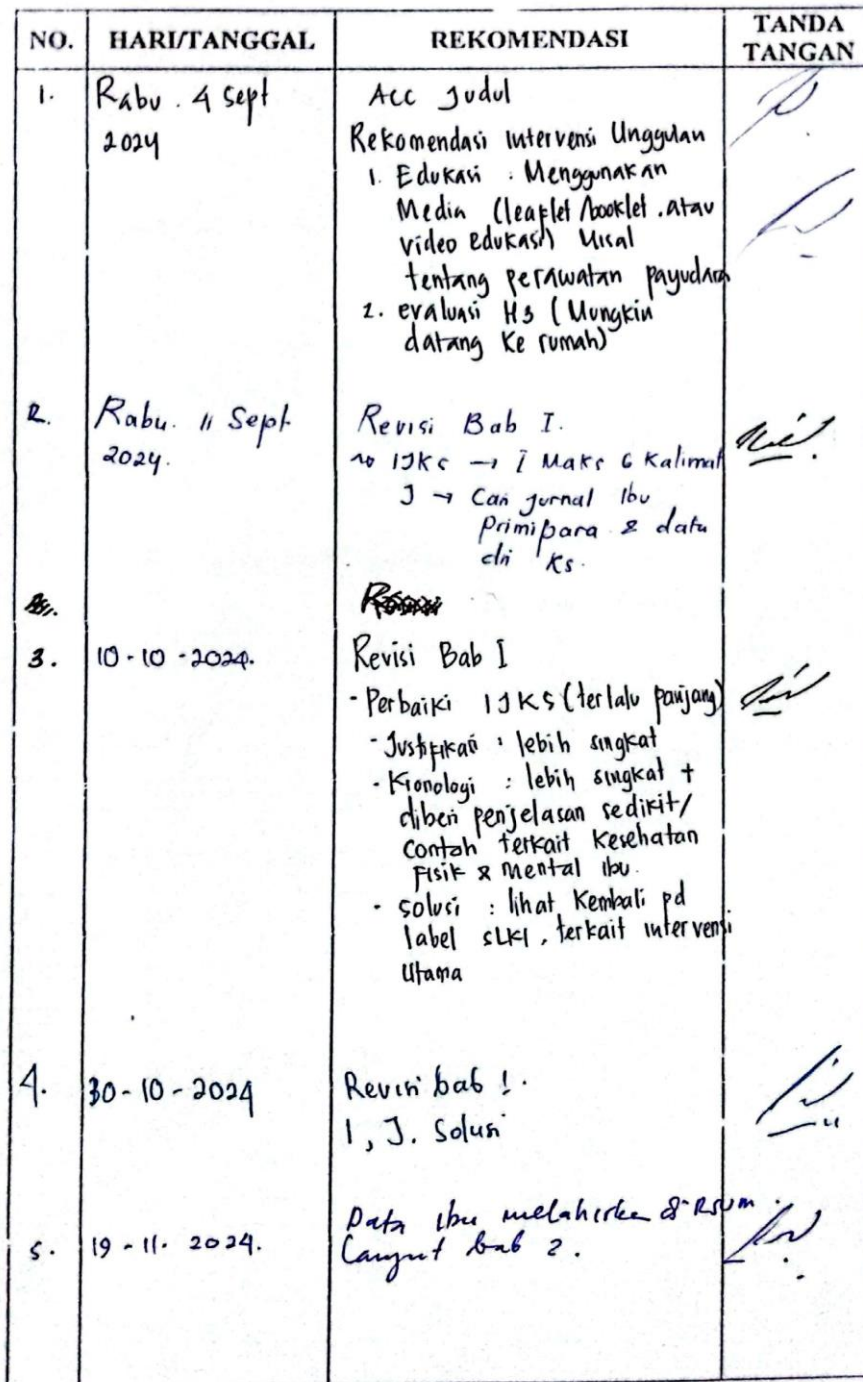 NO. HARI/TANGGAL REKOMENDASI TANDA TANGAN
1. Rabu. 4 Sept 2024
Acc Judul
Rekomendasi intervensi Unggulan
1. Edukasi : Menggunakan
Media (leaflet/booklet. atau
video edukasi) Misal
tentang perawatan payudara
2. evaluasi H3 (Mungkin
datang ke rumah)
2. Rabu. 11 Sept. 2024.
Revisi Bab I.
IJKS → I Maks 6 Kalimat
J → Cari jurnal Ibu
Primipara & data
dri KS.
3. 10-10-2024.
Revisi Bab I
- Perbaiki IJKS (terlalu panjang)
- Justifikasi : lebih singkat
- Kronologi : lebih singkat +
diberi penjelasan sedikit/
contoh terkait Kesehatan
Fisik & mental ibu.
- solusi : lihat Kembali pd
label SLKI, terkait intervensi
Utama
4. 30-10-2024
Revisi bab 1.
I, J. Solusi
5. 19-11-2024.
Data ibu melahirkan di RSUM.
Lanjut bab 2.